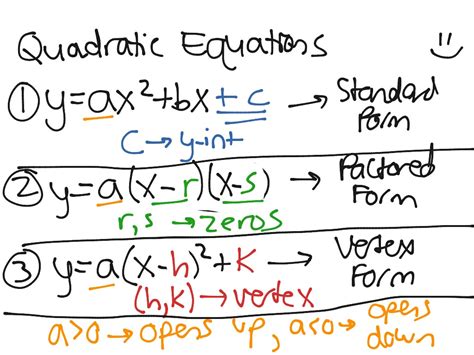 Quadratic Equations :)
① y=ax²+bx+c → Standard Form
c → y-int
② y=a(x-r)(x-s) → Factored Form
r,s → zeros
③ y=a(x-h)²+K → Vertex Form
(h,k) → vertex
a>0 → opens up, a<0 → opens down